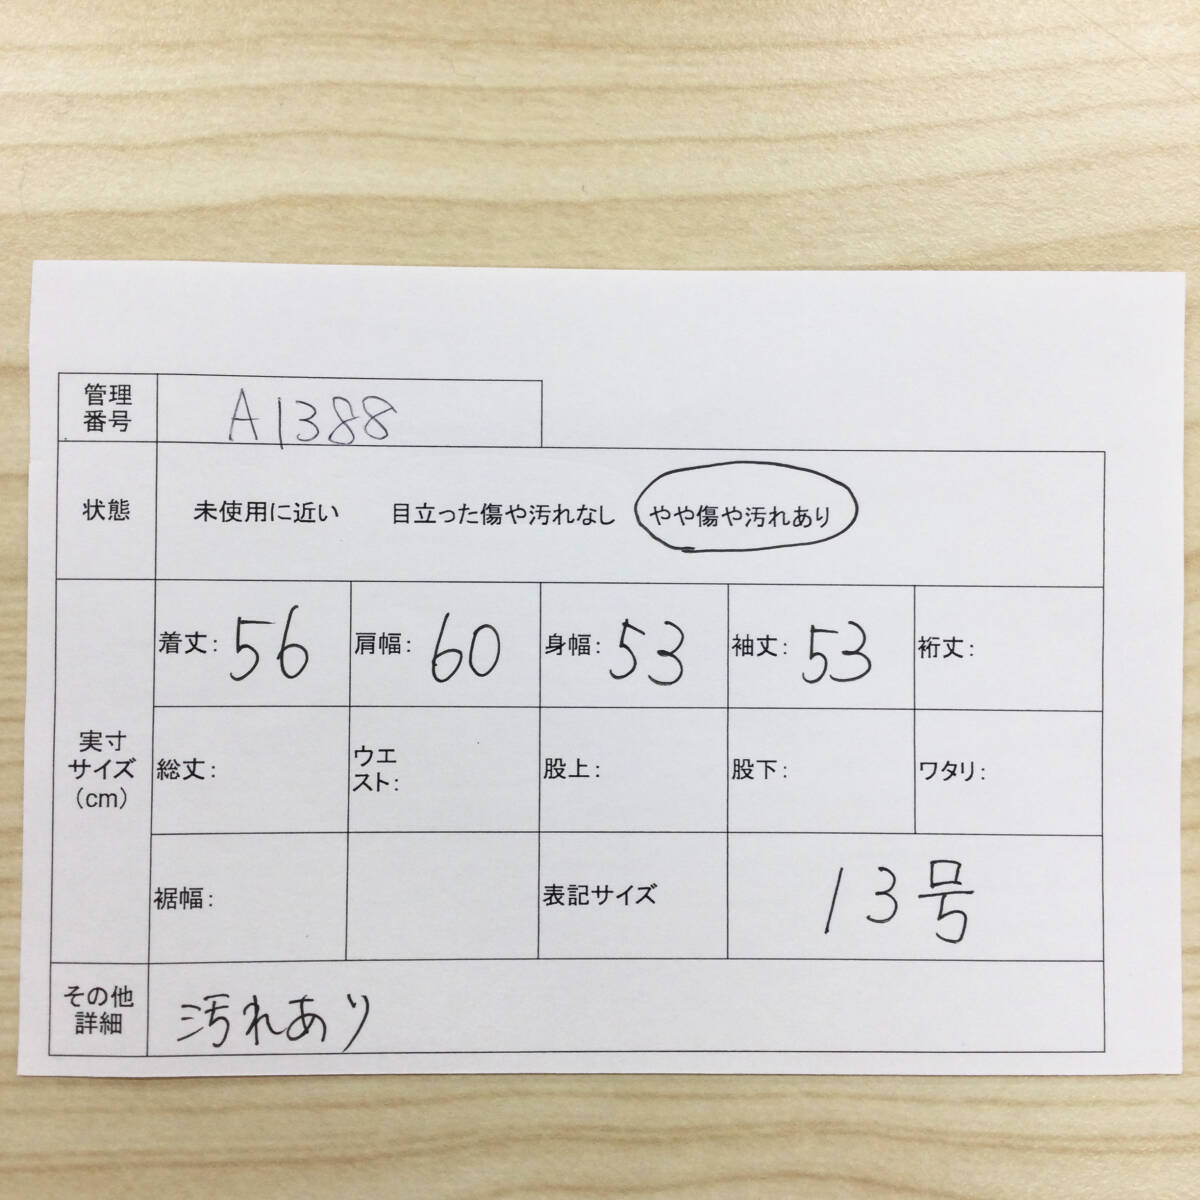 管理
番号
A1388
状態
未使用に近い 目立った傷や汚れなし やや傷や汚れあり
実寸
サイズ
(cm)
着丈: 56
肩幅: 60
身幅: 53
袖丈: 53
裄丈:
総丈:
ウエ
スト:
股上:
股下:
ワタリ:
裾幅:
表記サイズ
13号
その他
詳細
汚れあり